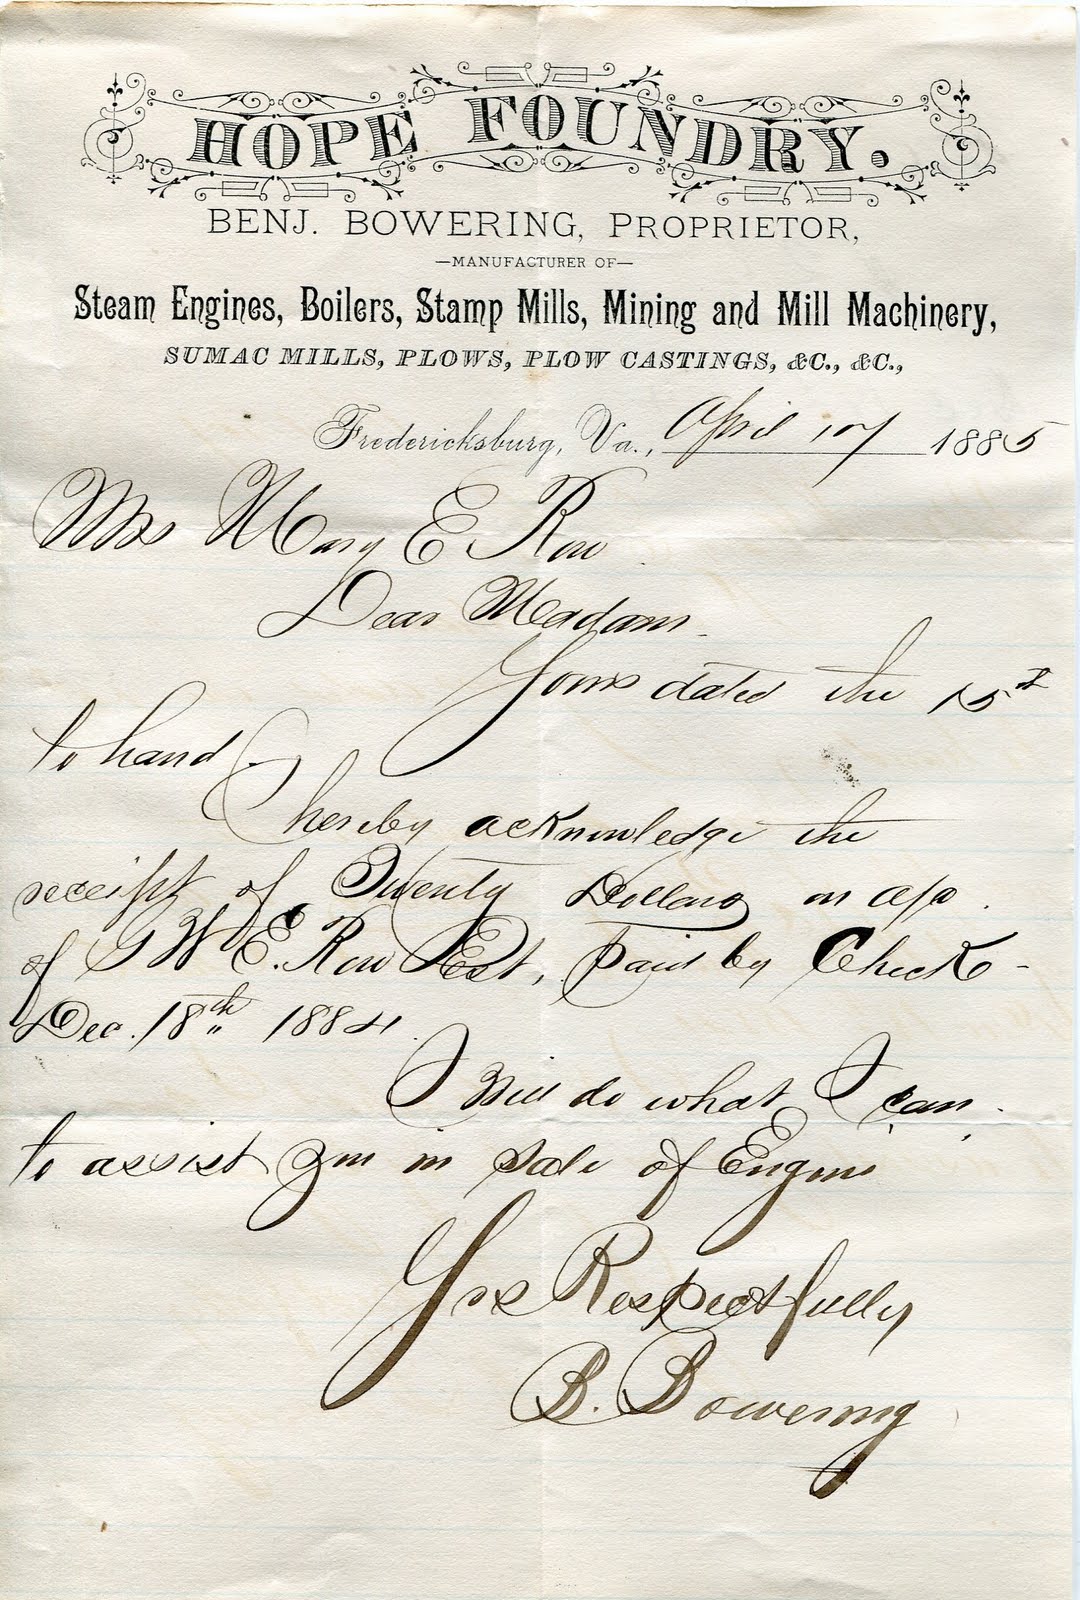 HOPE FOUNDRY.
BENJ. BOWERING, PROPRIETOR,
—MANUFACTURER OF—
Steam Engines, Boilers, Stamp Mills, Mining and Mill Machinery,
SUMAC MILLS, PLOWS, PLOW CASTINGS, &C., &C.,
Fredericksburg, Va., April 17 1885
Mrs Mary E Row
Dear Madam
Yours dated the 15th
to hand
I hereby acknowledge the
receipt of Twenty Dollars on a/c
of G W E. Row Est, paid by Check -
Dec. 18th 1884.
I Will do what I can
to assist you in sale of Engine
Yrs Respectfully
B. Bowering